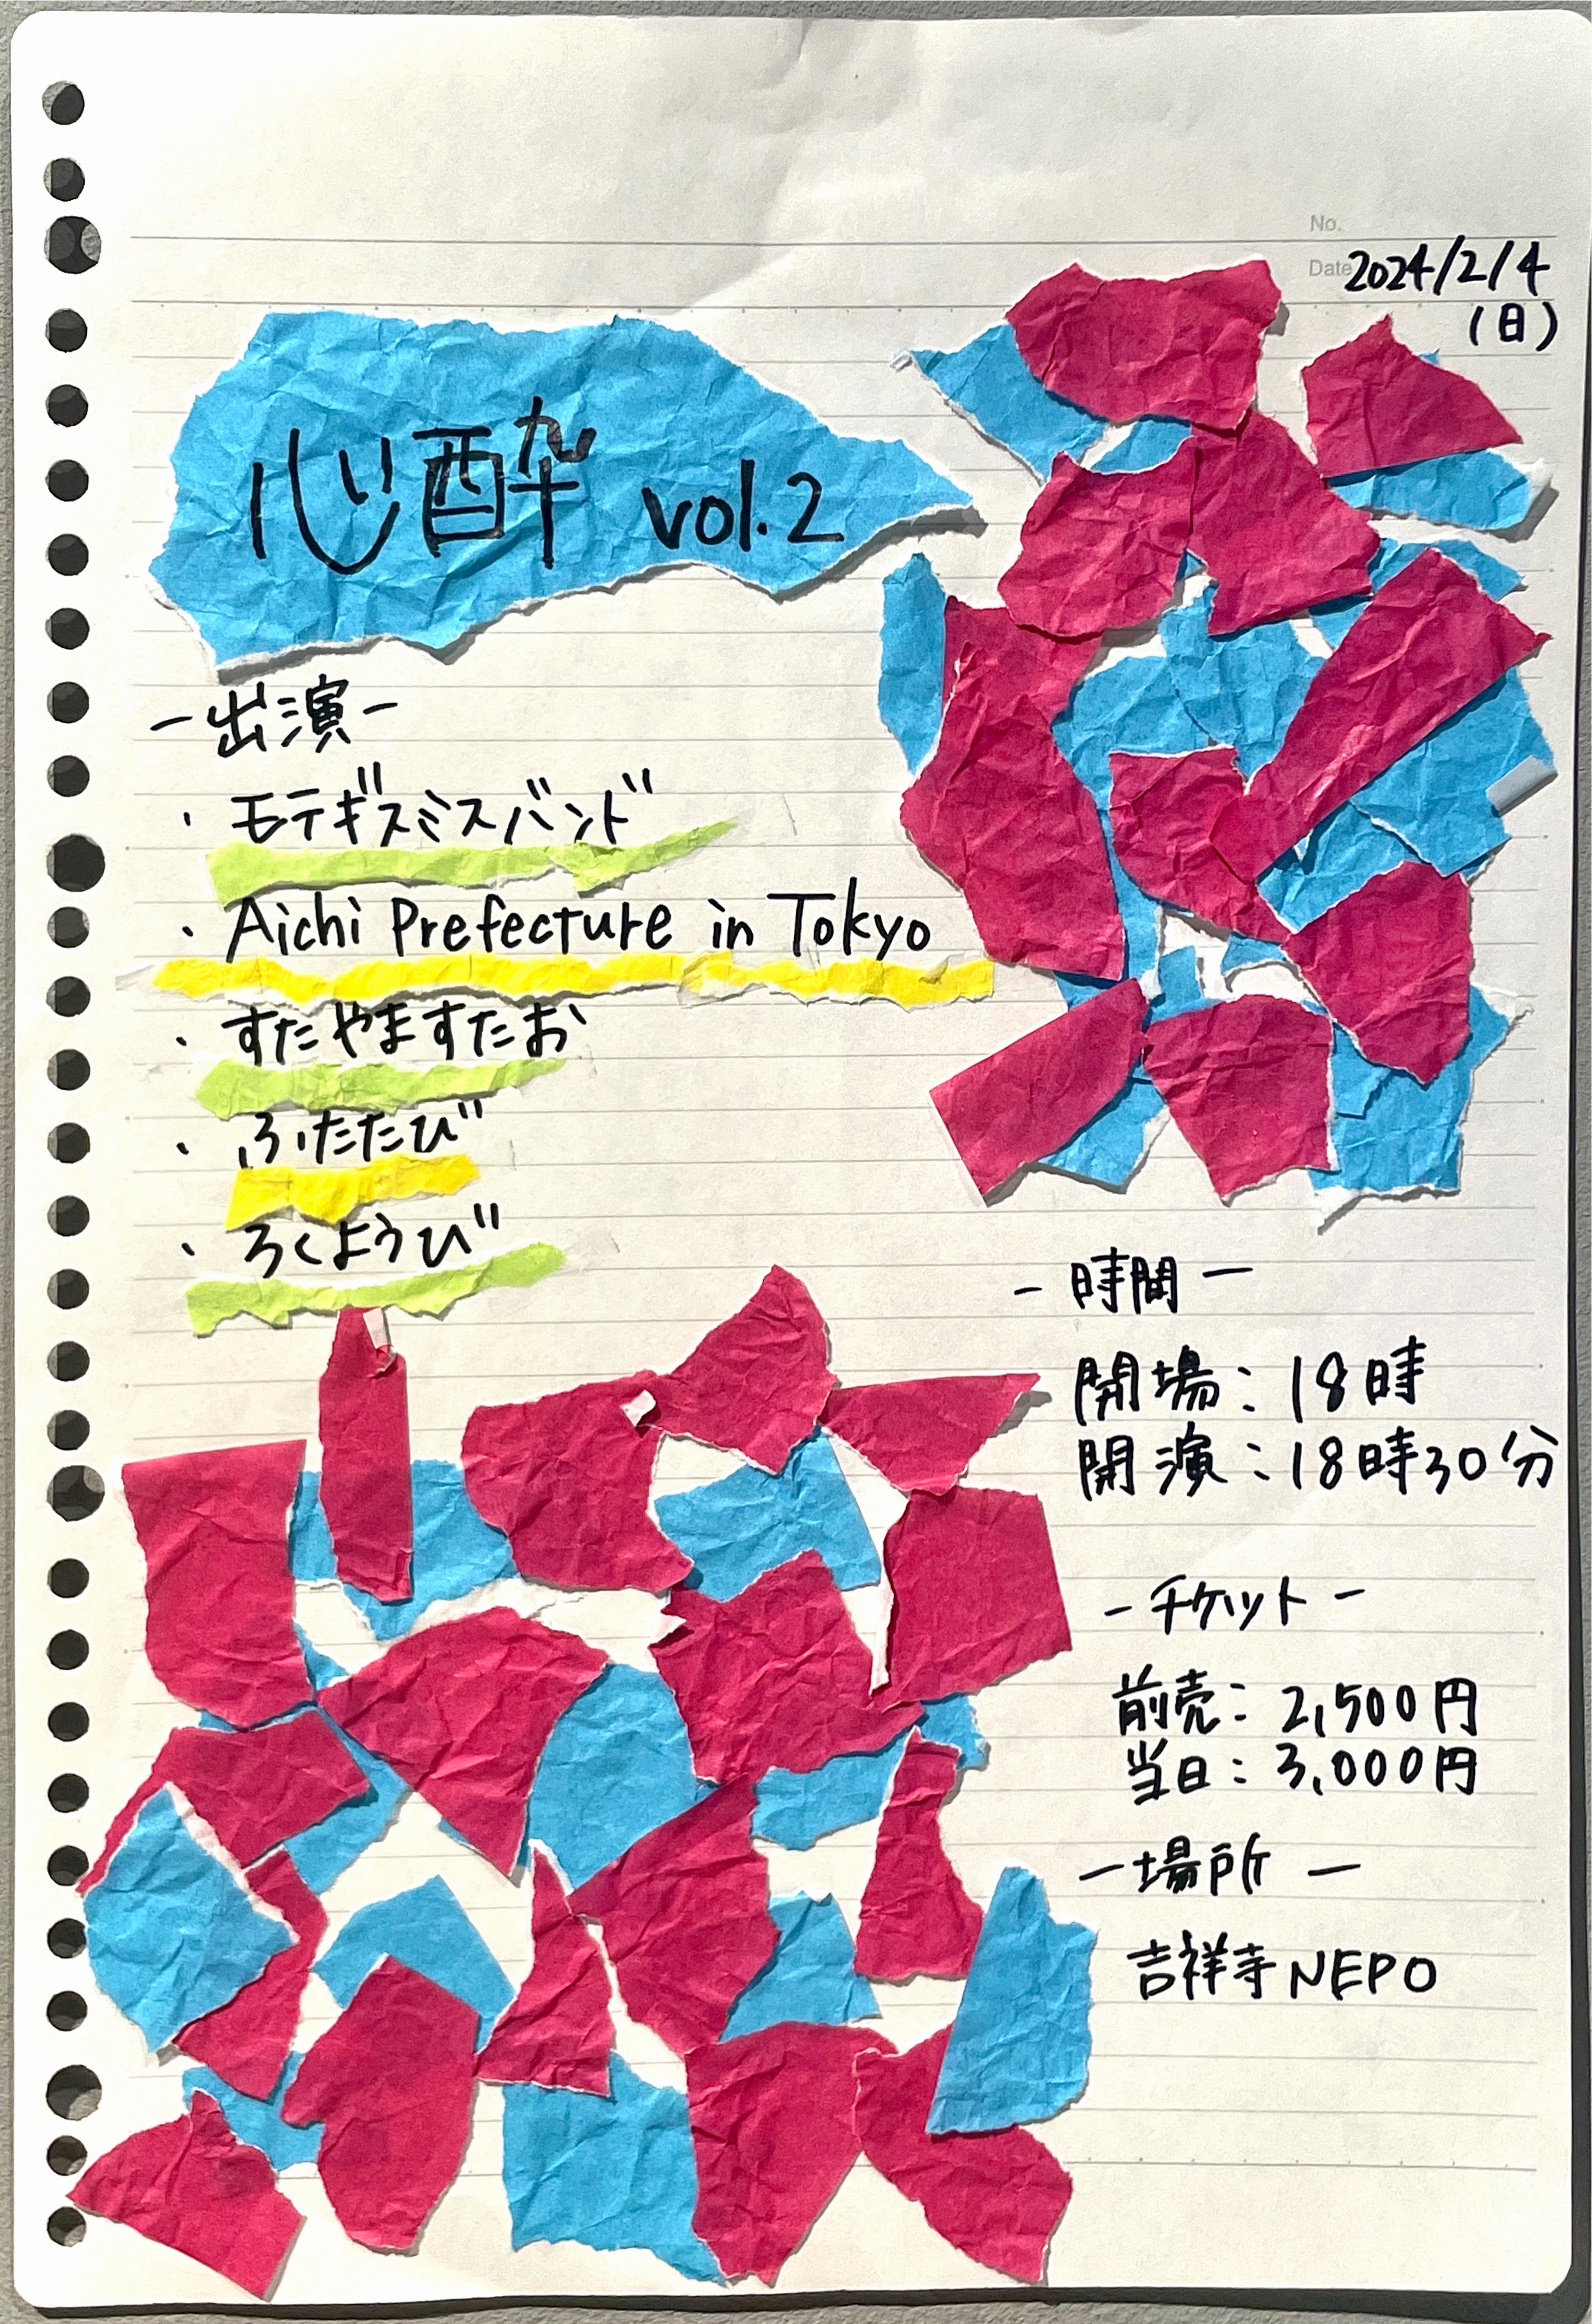 No.
Date 2024/2/4
(日)
心酔 vol.2
-出演-
・モテギスミスバンド
・Aichi Prefecture in Tokyo
・すたやますたお
・ふたたび
・ろくようび
- 時間 -
開場:18時
開演:18時30分
-チケット-
前売:2,500円
当日:3,000円
-場所-
吉祥寺NEPO